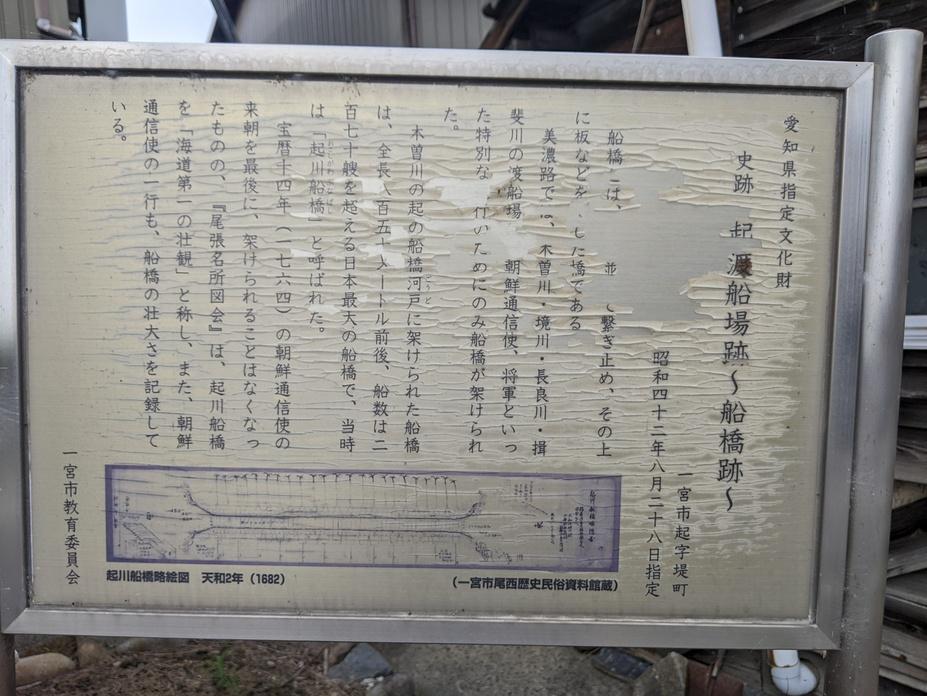 愛知県指定文化財
史跡 起渡船場跡〜船橋跡〜
一宮市起字堤町
昭和四十二年八月二十八日指定
船橋は、 並 繋ぎ止め、その上
に板などを した橋である
美濃路では、木曽川・境川・長良川・揖
斐川の渡船場 朝鮮通信使、将軍といっ
た特別な 行のためにのみ船橋が架けられ
た。
木曽川の起の船橋河戸に架けられた船橋
は、全長八百五十メートル前後、船数は二
百七十艘を超える日本最大の船橋で、当時
は「起川船橋」と呼ばれた。
宝暦十四年(一七六四)の朝鮮通信使の
来朝を最後に、架けられることはなくなっ
たものの、『尾張名所図会』は、起川船橋
を「海道第一の壮観」と称し、また、朝鮮
通信使の一行も、船橋の壮大さを記録して
いる。
一宮市教育委員会
起川船橋略絵図 天和2年(1682)
(一宮市尾西歴史民俗資料館蔵)